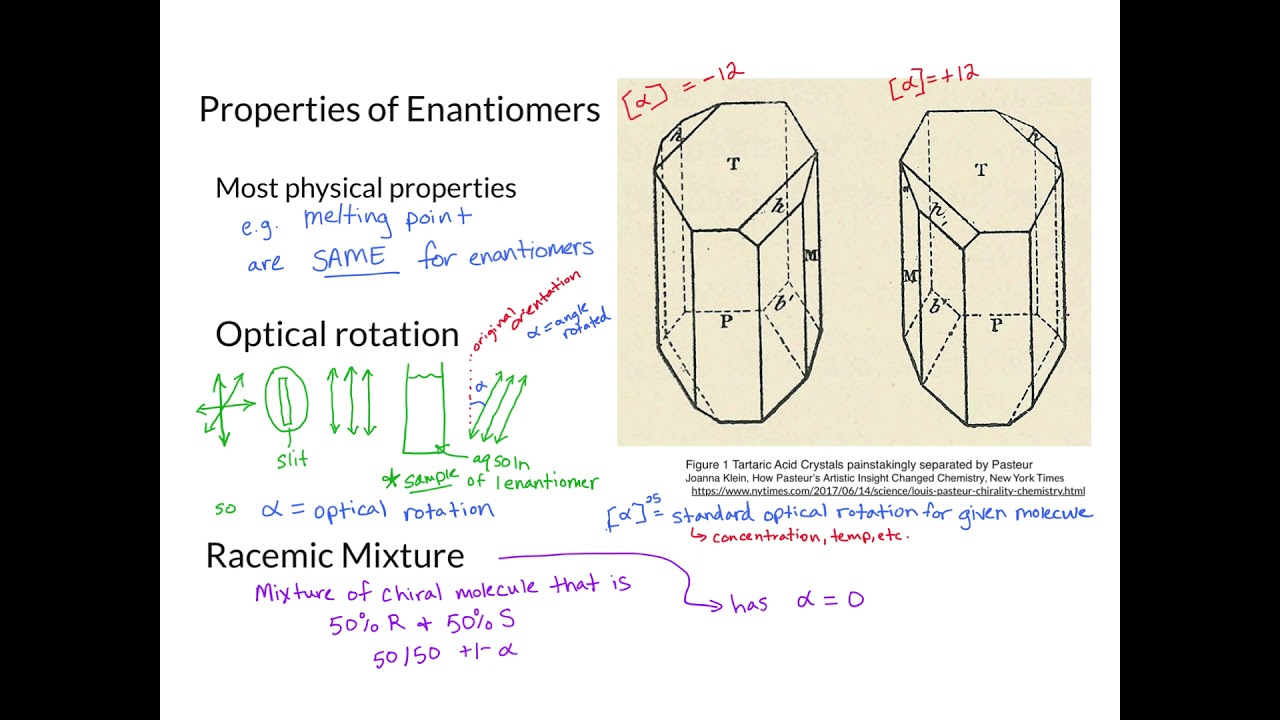 Properties of Enantiomers
Most physical properties
e.g. melting point
are SAME for enantiomers
Optical rotation
original orientation
α = angle rotated
α
slit
aq soln
* sample of 1 enantiomer
so α = optical rotation
Racemic Mixture
Mixture of chiral molecule that is
50% R + 50% S
50/50 +/- α
has α = 0
[α] = -12
[α] = +12
h
T
h
M
P
b'
T
h,
M
b'
P
Figure 1 Tartaric Acid Crystals painstakingly separated by Pasteur
Joanna Klein, How Pasteur's Artistic Insight Changed Chemistry, New York Times
https://www.nytimes.com/2017/06/14/science/louis-pasteur-chirality-chemistry.html
[α]²⁵ = standard optical rotation for given molecule
↳ concentration, temp, etc.